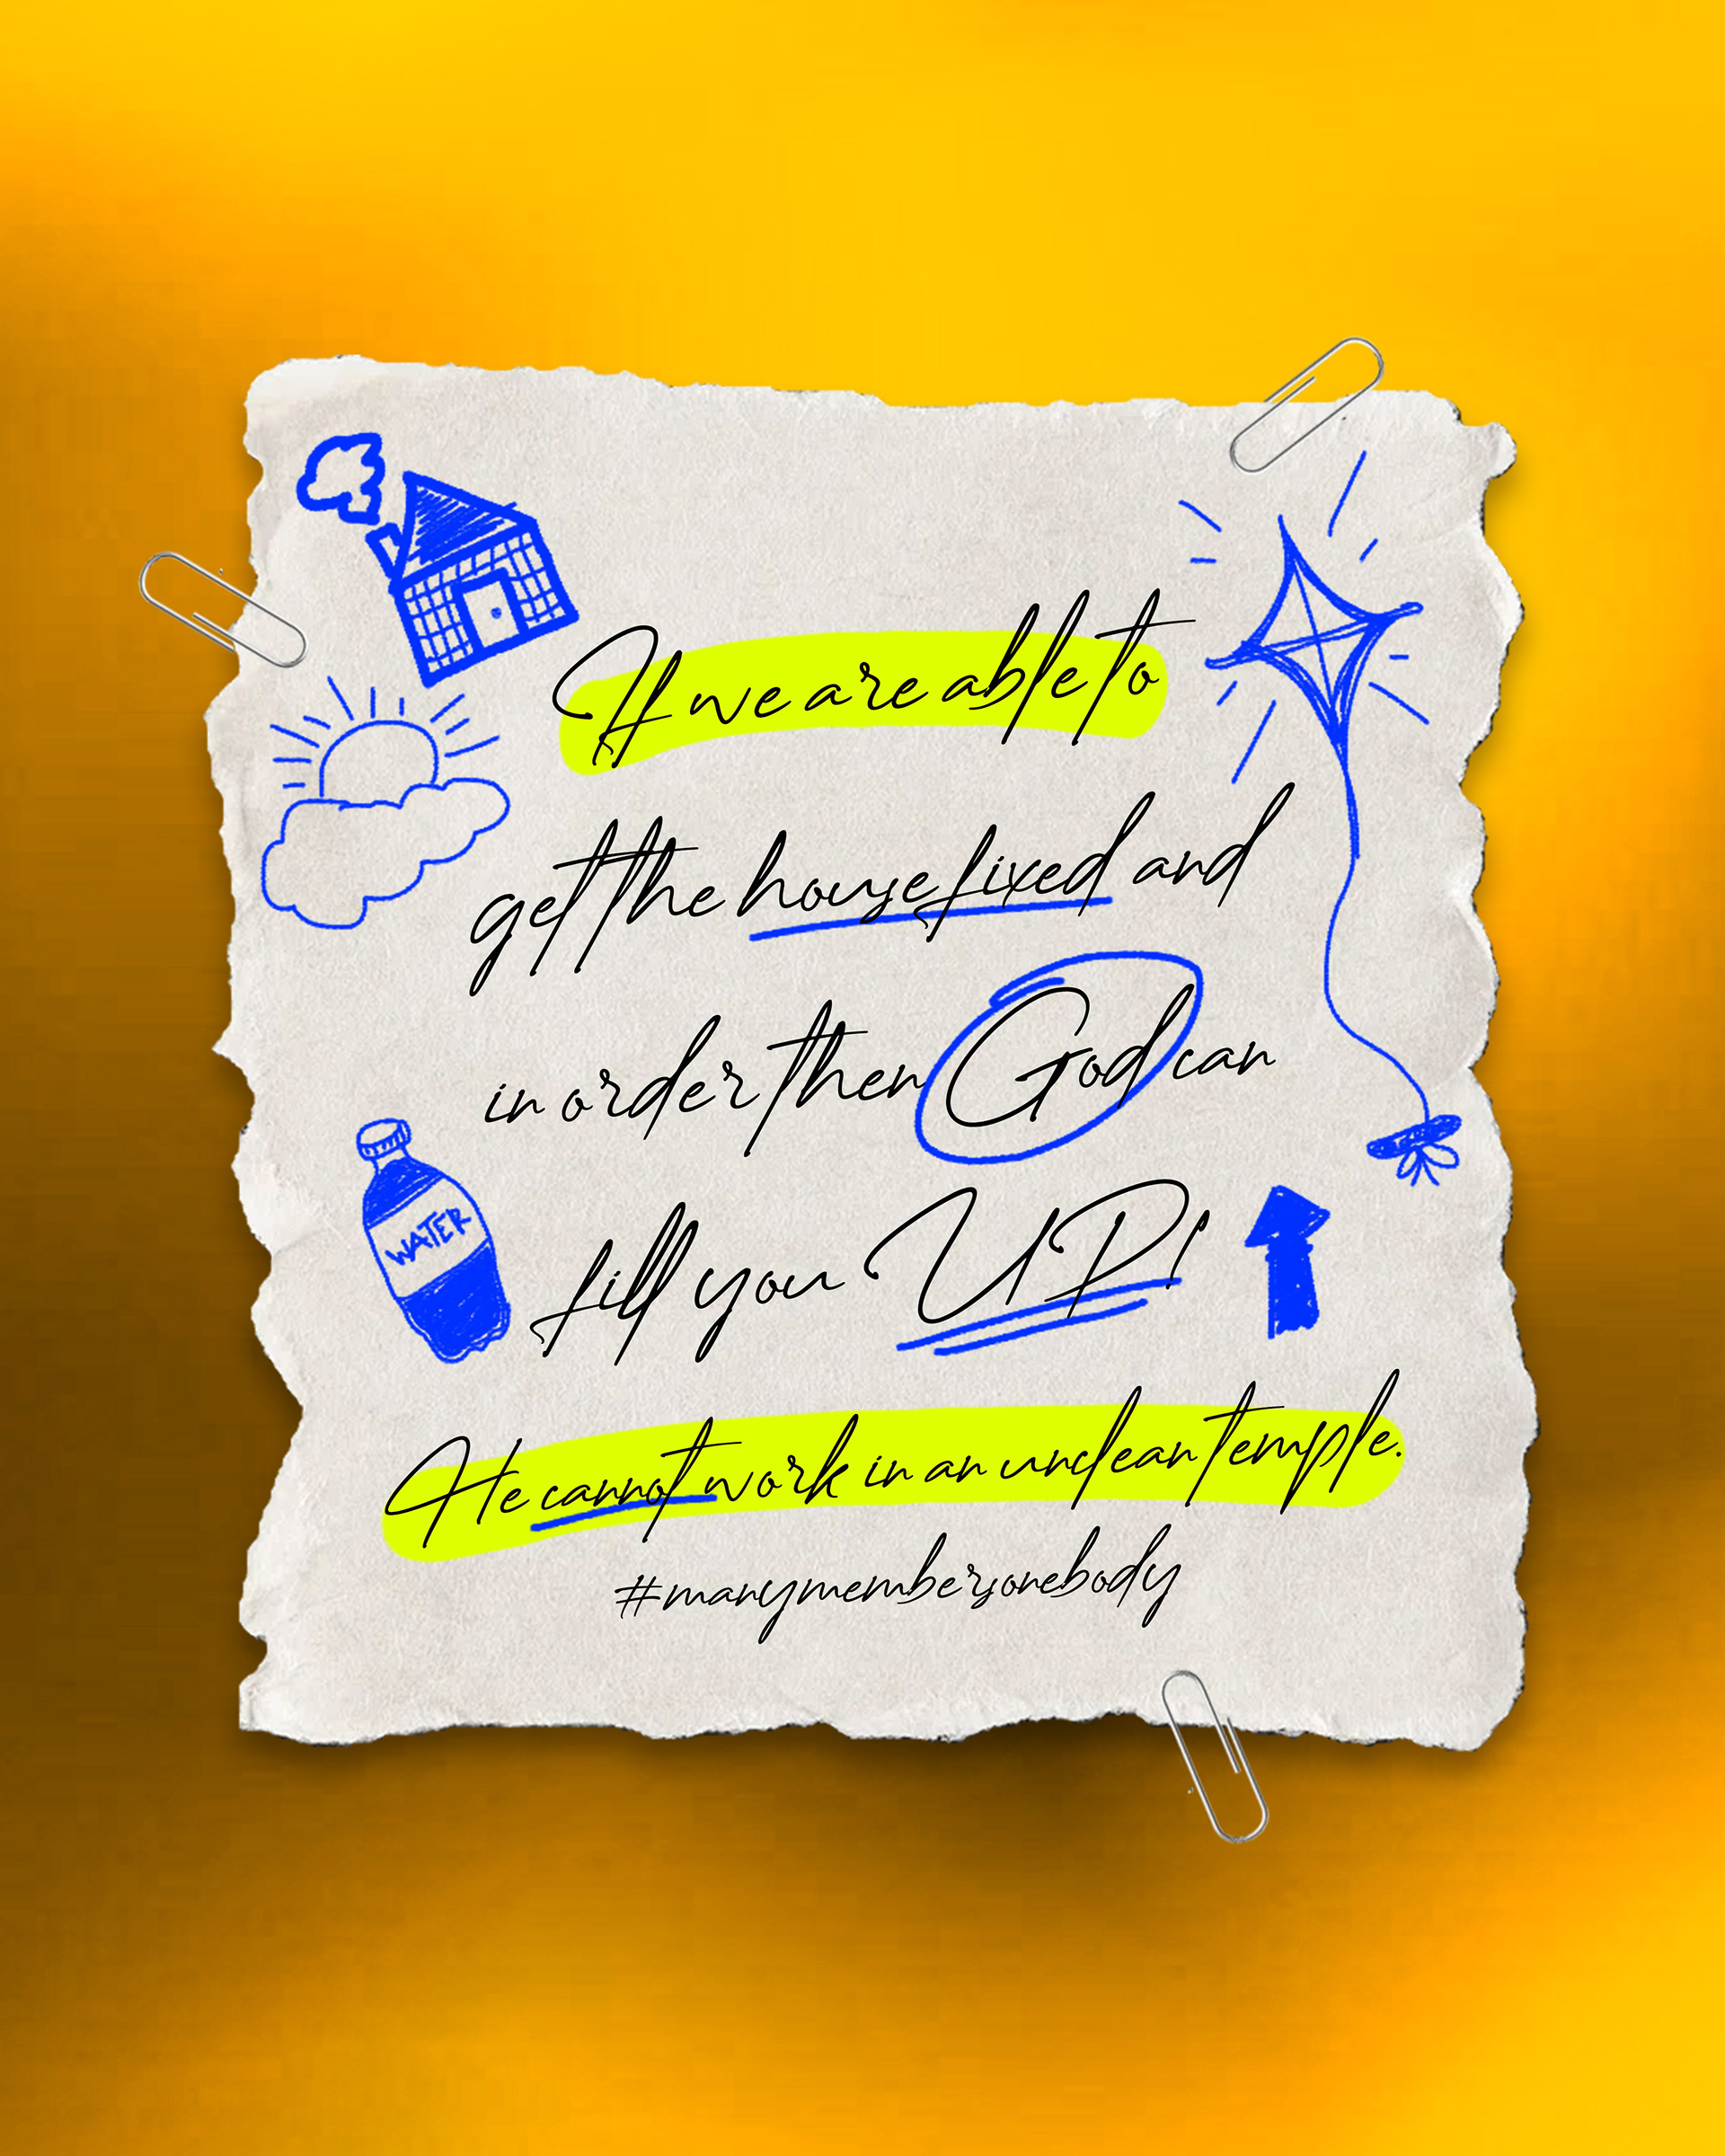 If we are able to
get the house fixed and
in order then God can
fill you UP!
WATER
He cannot work in an unclean temple.
#manymembersonebody